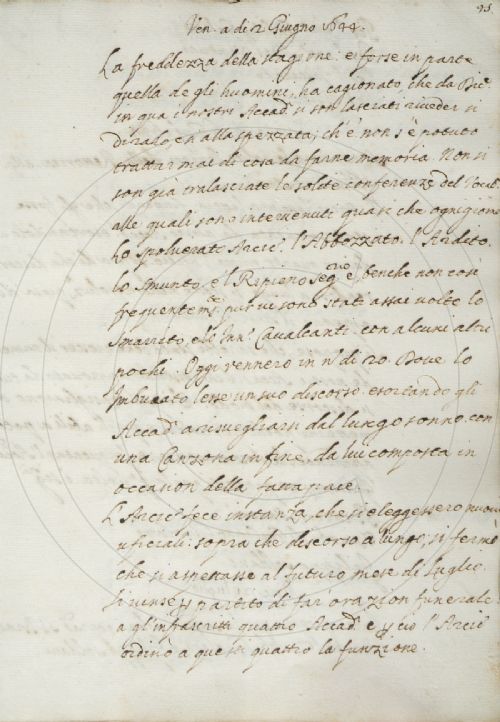 95
Ven. a dì 2 Giugno 1644.
La freddezza della stagione: e forse in parte
quella degli huomini, ha cagionato, che da Dic.e
in qua i nostri Accad.i si son lasciati riveder sì
di rado, e sì alla spezzata; ch'è non s'è potuto
trattar mai di cosa da farne memoria. Non si
son già tralasciate le solite conferenze del Vocab.
alle quali sono intervenuti quasi che ogni giorno
lo Spolverato Arcic.o l'Abbozzato, l'Ardito,
lo Smunto, e 'l Ripieno Seg.rio e, benche non così
frequentem.te, pur vi sono stati assai volte lo
Smarrito, e lo Inn.o Cavalcanti con alcuni altri
pochi. Oggi vennero in n.o di 20. Dove lo
Imbucato lesse un suo discorso esortando gli
Accad.i a risvegliarsi dal lungo sonno, con
una Canzona in fine, da lui composta in
occasion della fatta pace.
L'Arcic.o fece instanza, che si eleggessero nuovi
uficiali: sopra che discorso a lungo, si fermò
che si aspettasse al futuro mese di Luglio.
Si vinse p partito di far orazion funerale
a gl'infrascritti quattro Accad.i e p ciò l'Arcic.o
ordinò a que quattro la funzione.